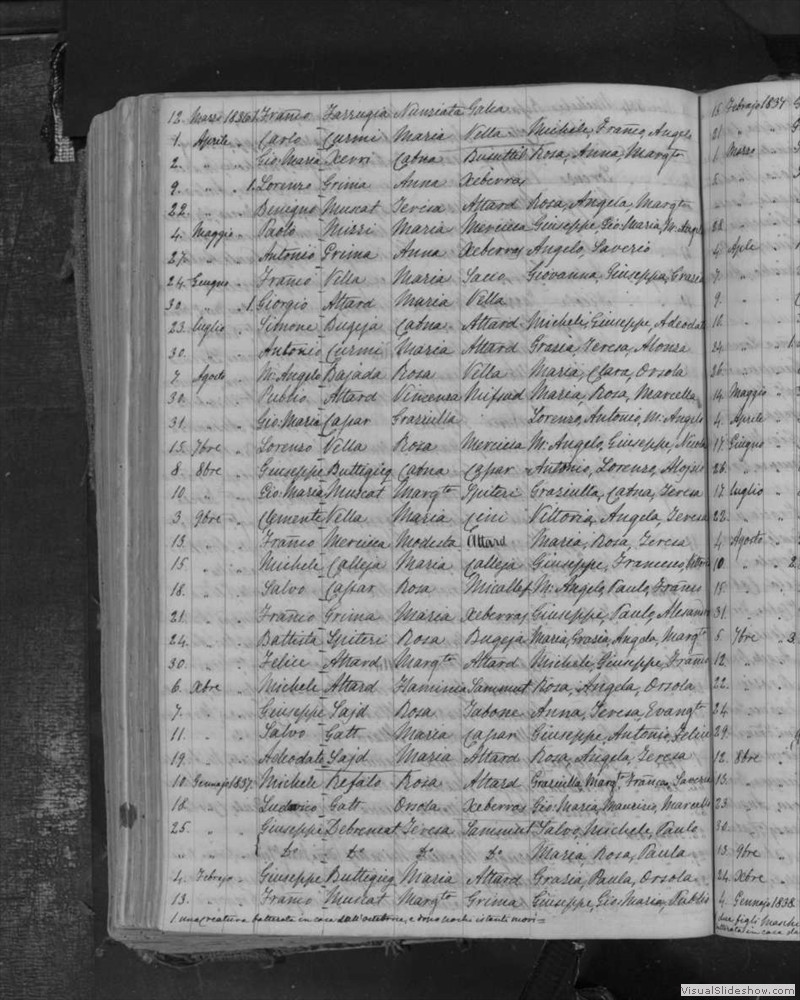 12. Marzo 1836 1. Franco Farrugia Nunziata Galea
1. Aprile " Carlo Curmi Maria Vella Michele, Franco, Angelo
2. " " Gio: Maria Xerri Catna Busuttil Rosa, Anna, Margta
9. " " 1. Lorenzo Grima Anna Xeberras
22. " " Benigno Muscat Teresa Attard Rosa, Angela, Margta
4. Maggio " Paolo Mizzi Maria Mercieca Giuseppe, Gio: Maria, M: Angelo
27. " " Antonio Grima Anna Xeberras Angelo, Saverio
24. Giugno " Franco Vella Maria Giovanna, Giuseppa, Grazia
30. " " 1. Giorgio Attard Maria Vella
23. Luglio " Simone Bugeja Catna Attard Michele, Giuseppe, Adeodato
30. " " Antonio Curmi Maria Attard Grazia, Teresa, Alonza
7. Agosto " M: Angelo Bajada Rosa Vella Maria, Clara, Orsola
30. " " Publio Attard Vincenza Mifsud Maria, Rosa, Marcella
31. " " Gio: Maria Capar Graziulla Lorenzo, Antonio, M: Angelo
15. 7bre " Lorenzo Vella Rosa Mercieca M: Angelo, Giuseppe, Nicola
8. 8bre " Giuseppe Buttigieg Catna Capar Antonio, Lorenzo, Alojsio
10. " " Gio: Maria Muscat Margta Spiteri Graziulla, Catna, Teresa
3. 9bre " Clemente Vella Maria Cini Vittoria, Angela, Teresa
13. " " Franco Mercieca Modesta Attard Maria, Rosa, Teresa
15. " " Michele Calleja Maria Calleja Giuseppe, Francesco,
18. " " Salvo Capar Rosa Micallef M: Angelo, Paulo, Franco
21. " " Franco Grima Maria Xeberras Giuseppe, Paulo,
24. " " Battista Spiteri Rosa Bugeja Maria, Grazia, Angela, Margta
30. " " Felice Attard Margta Attard Michele, Giuseppe, Franco
6. Xbre " Michele Attard Flaminia Sammut Rosa, Angela, Orsola
7. " " Giuseppe Sajd Rosa Tabone Anna, Teresa, Evangta
11. " " Salvo Gatt Maria Capar Giuseppe, Antonio, Felice
19. " " Adeodato Sajd Maria Attard Rosa, Angela, Teresa
10. Gennajo 1837. Michele Refalo Rosa Attard Graziulla, Margta, Franca, Saveria
18. " " Ludovico Gatt Orsola Xeberras Gio: Maria, Maurizio, Marcello
25. " " Giuseppe Debrincat Teresa Sammut Salvo, Michele, Paulo
" " " Do Do Do Do Maria, Rosa, Paula
4. Febrajo " Giuseppe Buttigieg Maria Attard Grazia, Paula, Orsola
13. " " Franco Muscat Margta Grima Giuseppe, Gio: Maria, Publio
1. una creatura battezzata in casa dall'ostetrice, e dopo pochi istanti morì =
15 Febrajo 1837
21 " "
1 Marzo "
5. " "
" " "
22. " "
4. Aple "
7. " "
9. " "
16. " "
24. " "
26. " "
14. Maggio "
4. Aprile "
17. Giugno "
26. " "
17. Luglio "
22. " "
4. Agosto "
10. " " 2
15. " "
31. " "
5. 7bre "
12. " "
22. " "
24. " "
29. " "
12. 8bre "
13. " "
23. " "
30. " "
13. 9bre "
24. Xbre "
4. Gennajo 1838
due figli Maschi
in casa da
VisualSlideshow.com